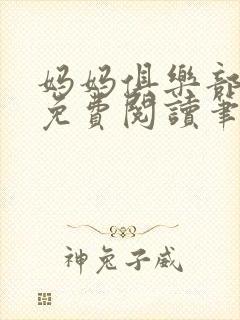 妈妈俱樂部
免費閱讀筆
神兔子威